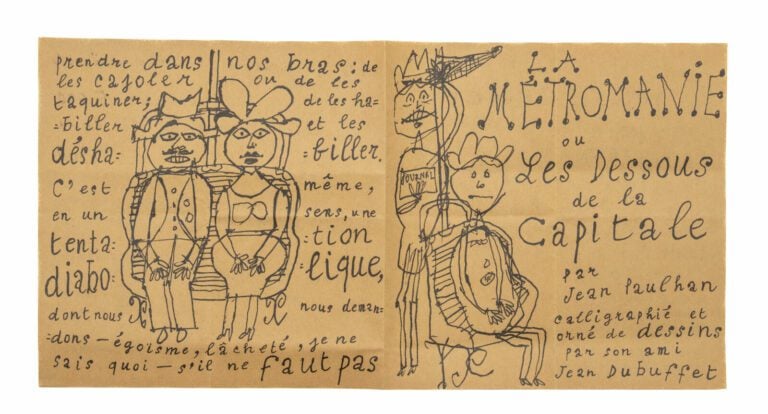 prendre dans nos bras: de
les cajoler ou de les
taquiner; de les ha=
=biller et les
désha= =biller.
C'est même,
en un sens, une
tenta= =tion
diabo= =lique,
dont nous nous deman=
=dons — égoïsme, lâcheté, je ne
sais quoi — s'il ne faut pas
LA
MÉTROMANIE
ou
Les Dessous
de la
Capitale
par
Jean Paulhan
calligraphié et
orné de dessins
par son ami
Jean Dubuffet
JOURNAL